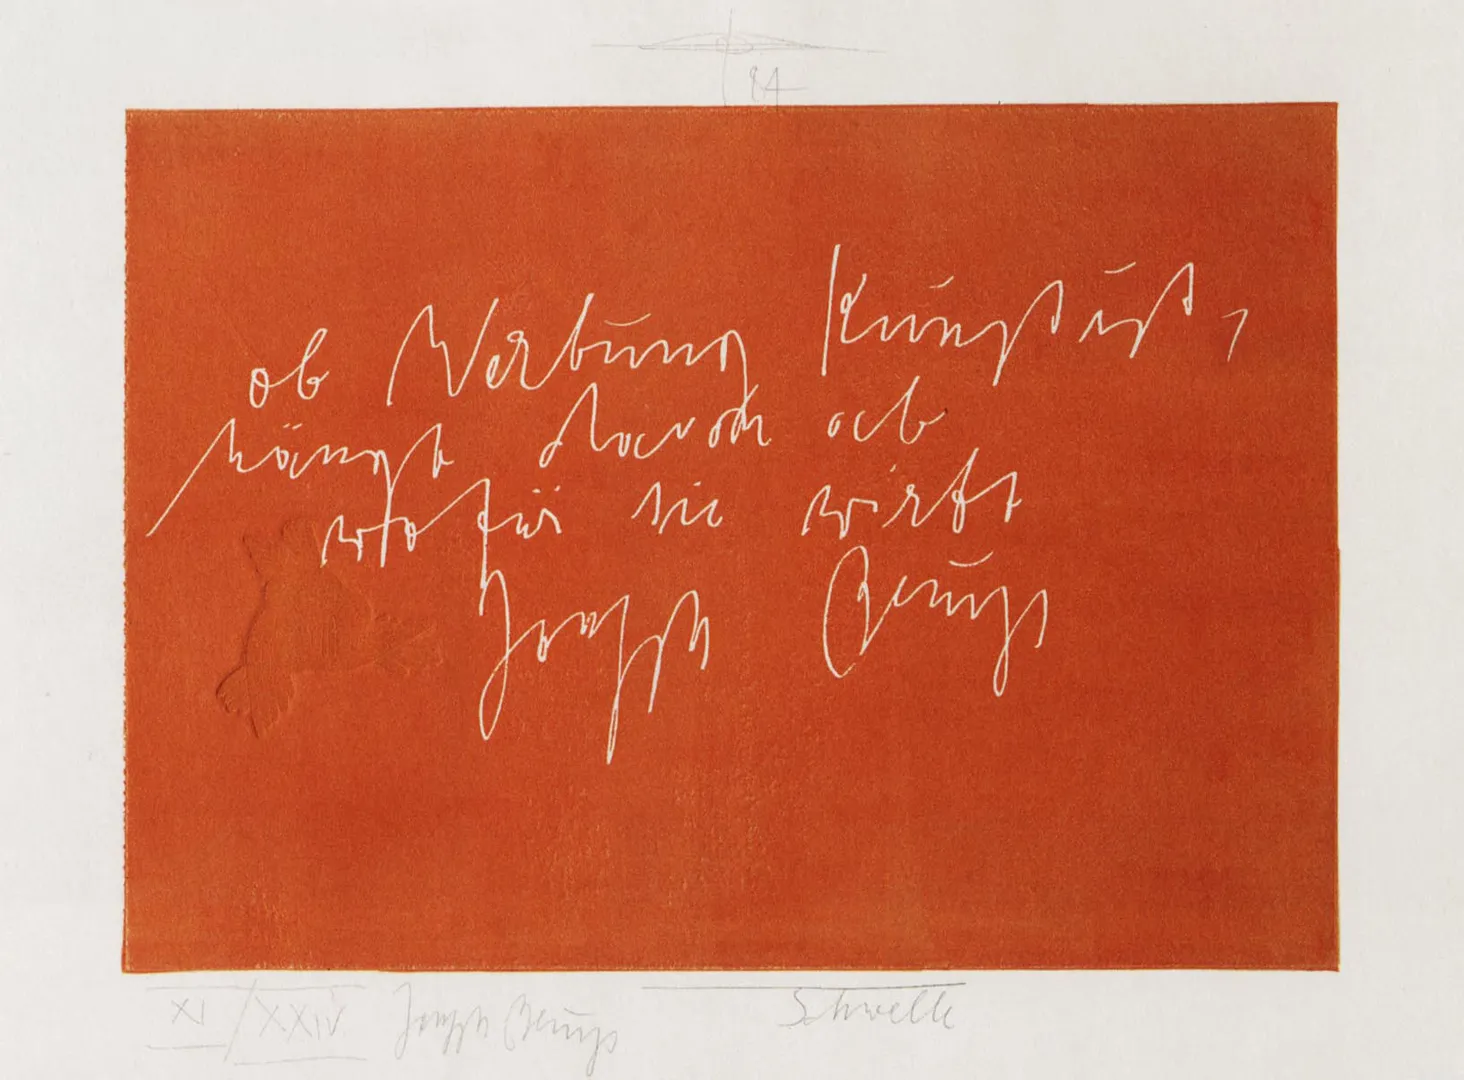 84
ob Werbung Kunst ist,
hängt davon ab
wofür sie wirbt
Joseph Beuys
XI/XXIV Joseph Beuys Schwelle